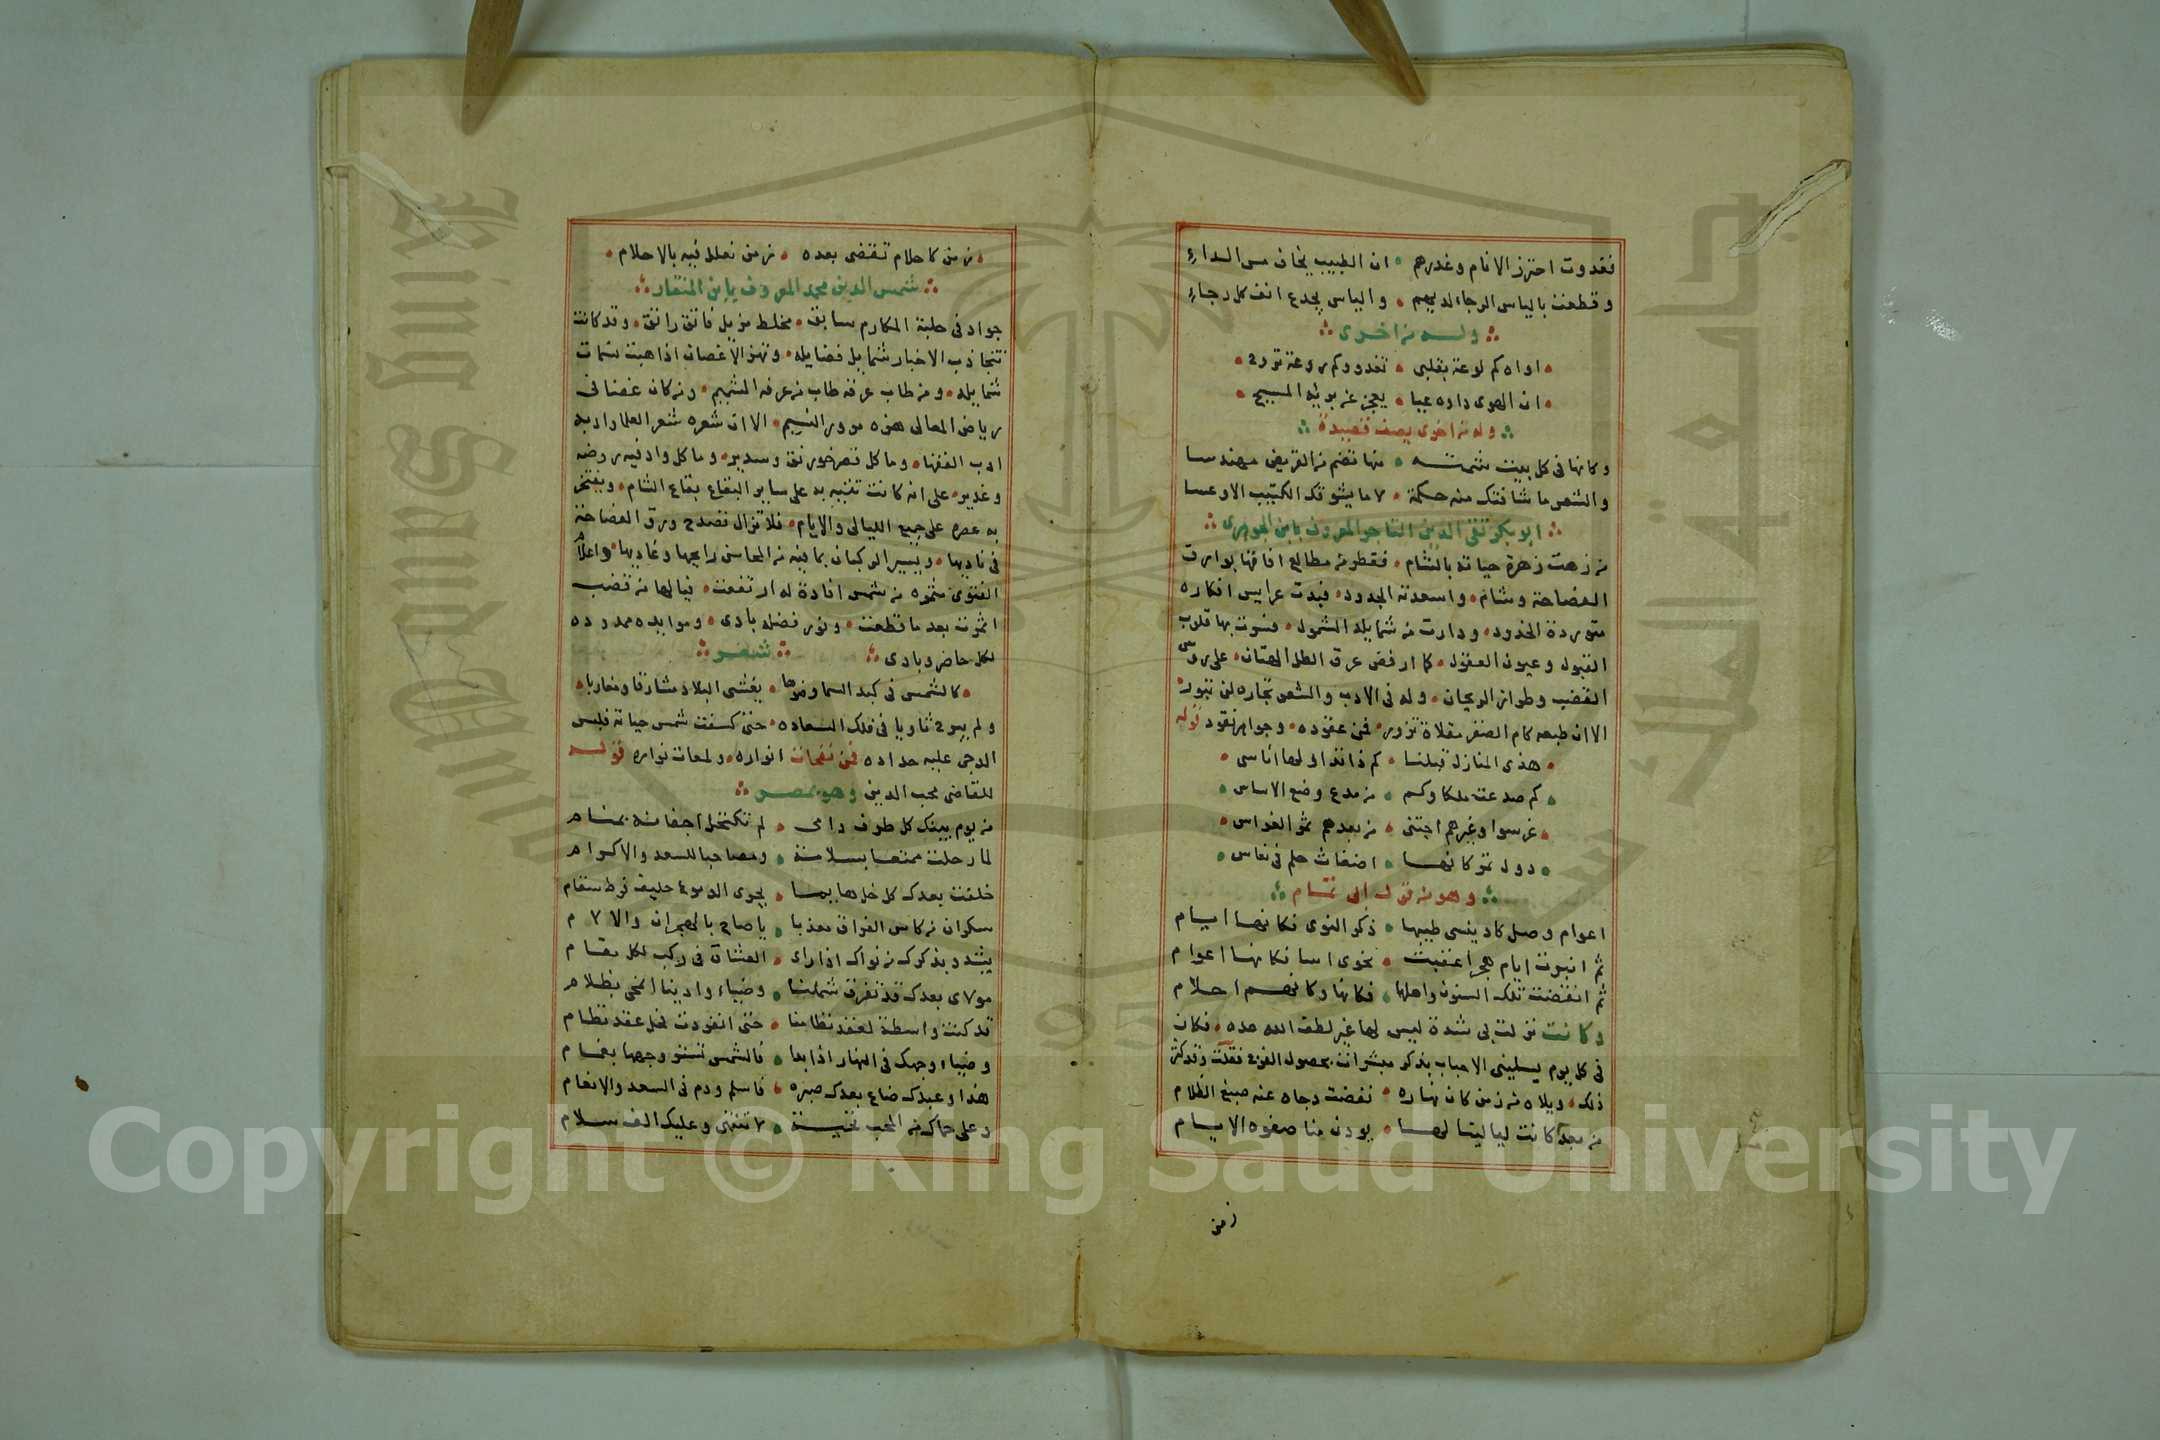 فغدوت احترز الانام وغدرهم • ان الطبيب يخاف مس الداءِ
وقطعت بالياس الرجا لديهم • والياس يجدع انف كل رجاءِ
وله من اخرى
• اواه كم لوعة بقلبى • تغدو وكم روعة تروح •
• ان الهوى داوه عيا • يعجز عن بريه المسيح •
وله من اخرى يصف قصيدة
وكانها فى كل بيت شمته • منها تضم من القريض مهندسا
والشعر ما شاقتك منه حكمة • لا ما يشوقك الكثيب الاوعسا
ابو بكر تقى الدين التاجر المعروف بابن الجوهرى
من زهت زهرة حياته بالشام • فقطر من مطالع افاقها بوارق
الفصاحة وشام • واسعدته الجدود • فبدت عرايس افكاره
متوردة الخدود • ودارت من شمايله الشمول • فسرت بها قلوب
القبول وعيون العقول • كما ارفض عرق الطل الهتان • على روس
القضب وطراز الريحان • وله فى الادب والشعر تجاره لن تبور •
الا ان طبعه كام الصقر مقلاة نزور • فمن عقوده • وجواهر نقوده قوله
• هذى المنازل قبلنا • كم ذا تداولها اناسى •
• كم صدعت ملكا وكم • من مدع وضع الاساس •
• غرسوا وغيرهم اجتنى • من بعدهم ثمر الغراس •
• دول تمر كانها • اضغاث حلم فى نعاس •
وهو من قول ابى تمام
اعوام وصل كاد ينسى طيبها • ذكر النوى فكانها ايام
ثم انبرت ايام هجر اعقبت • نحوى اسا فكانها اعوام
ثم انقضت تلك السنون واهلها • فكانها وكانهم احلام
وكانت نزلت بى شدة ليس لها غير لطف الله عده • فكان
فى كل يوم يسلينى الاحباب بذكر مبشرات بحصول الفرج فقلت وقد كثر
ذلك • ويلاه من زمن كان نهاره • نفضت دجاه عنه صبغ الظلام
من بعد كانت ليالينا لها • يودن منا صفوه الايام
زمن
• زمن كاحلام تقضى بعده • زمن نعلل فيه بالاحلام •
شمس الدين محمد المعروف بابن المنقار
جواد فى حلبة المكارم سابق • مخلط مزيل فائق رائق • وقد كانت
تتجاذب الاخبار شمايل فضايله • وتهز الاغصان اذا هبت نسمات
شمايله • ومن طاب عرقه طاب من عرفه الشميم • ومن كان غصنا فى
رياض المعالى هزه مرور النسيم • الا ان شعره شعر العلما وادبه
ادب الفقها • وما كل قصر خورنق وسدير • وما كل واد فيه روضه
وغدير • على انه كانت تفتيه به على ساير البقاع بقاع الشام • ويفتخر
به عصره على جميع الليالى والايام • فلا تزال تصدح ورق الفصاحة
فى ناديها • وتسير الركبان بما فيه من المحاسن رايحها وغاديها • واعلام
الفتوى مثمره من شمس افادة له ارتفعت • فيالها من قضب
اثمرت بعد ما قطعت • ونور فضله بادى • وموايده ممدوده
لكل حاضر وبادى شعر
• كالشمس فى كبد السما وضوها • يغشى البلاد مشارقا ومغاربا •
ولم يبرح ثاويا فى فلك السعاده • حتى كسفت شمس حياته فلبس
الدجى عليه حداده فمن نفحات انواره • ولمعات نواره قوله
للقاضى محب الدين وهو بمصر
من يوم بينك كل طرف دامى • لم تكتحل اجفانه بمنام
لما رحلت ممتعا بسلامة • ومصاحبا للسعد والاكرام
خلفت بعدك كل خل هايما • يجرى الدموع حليف فرط سقام
سكران من كاس الفراق معذبا • يا صاح بالهجران والالام
يشدو بذكرك من نواك اذا راى • العشاق فى ركب لكل مقام
مولاى بعدك قد تفرق شملنا • وضياء وادينا انمحى بظلام
قد كنت واسطة لعقد نظامنا • حتى انفردت فحل عقد نظام
وضياء وجهك فى النهار اذا بدا • فالشمس تستر وجهها بغمام
هذا وعبدك ضاع بعدك صبره • فاسلم ودم فى السعد والانعام
وعلى حماك من المحب تحية • لا تنتهى وعليك الف سلام
Copyright © King Saud University